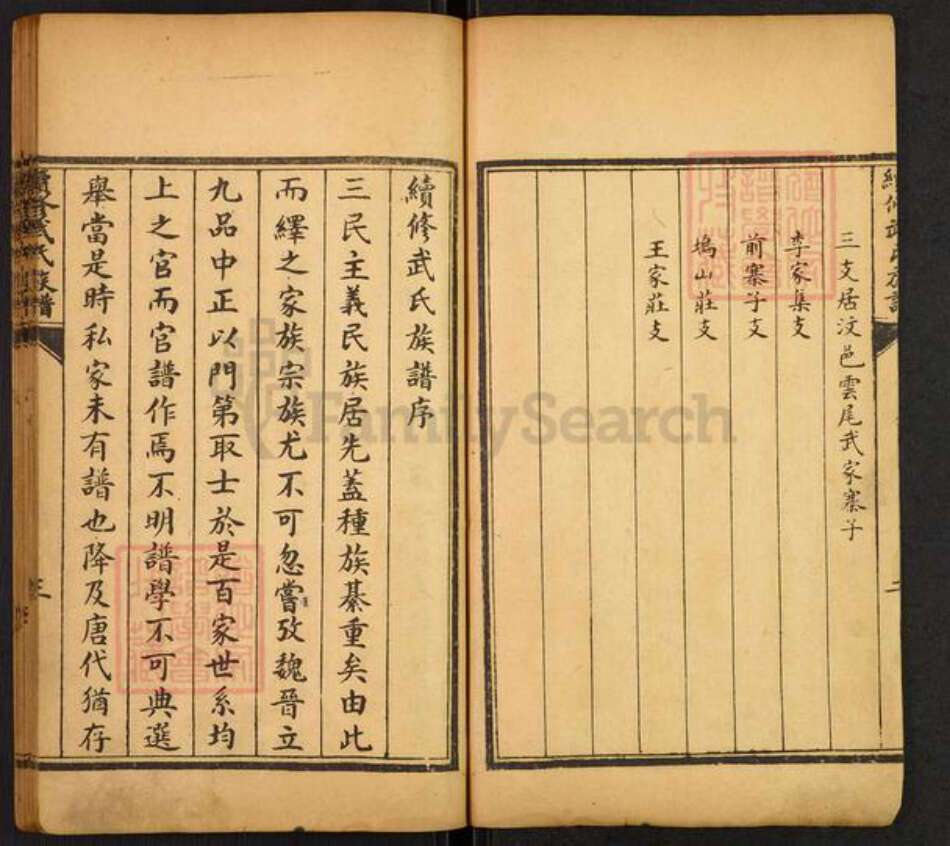 續修武氏族譜
三支居汶邑雲尾武家寨子
李家集支
前寨子支
塢山莊支
王家莊支
續修武氏族譜序
三民主義民族居先蓋種族綦重矣由此
而繹之家族宗族尤不可忽嘗攷魏晉立
九品中正以門第取士於是百家世系均
上之官而官譜作焉不明譜學不可典選
舉當是時私家未有譜也降及唐代猶存
續修武氏族譜
FamilySearch